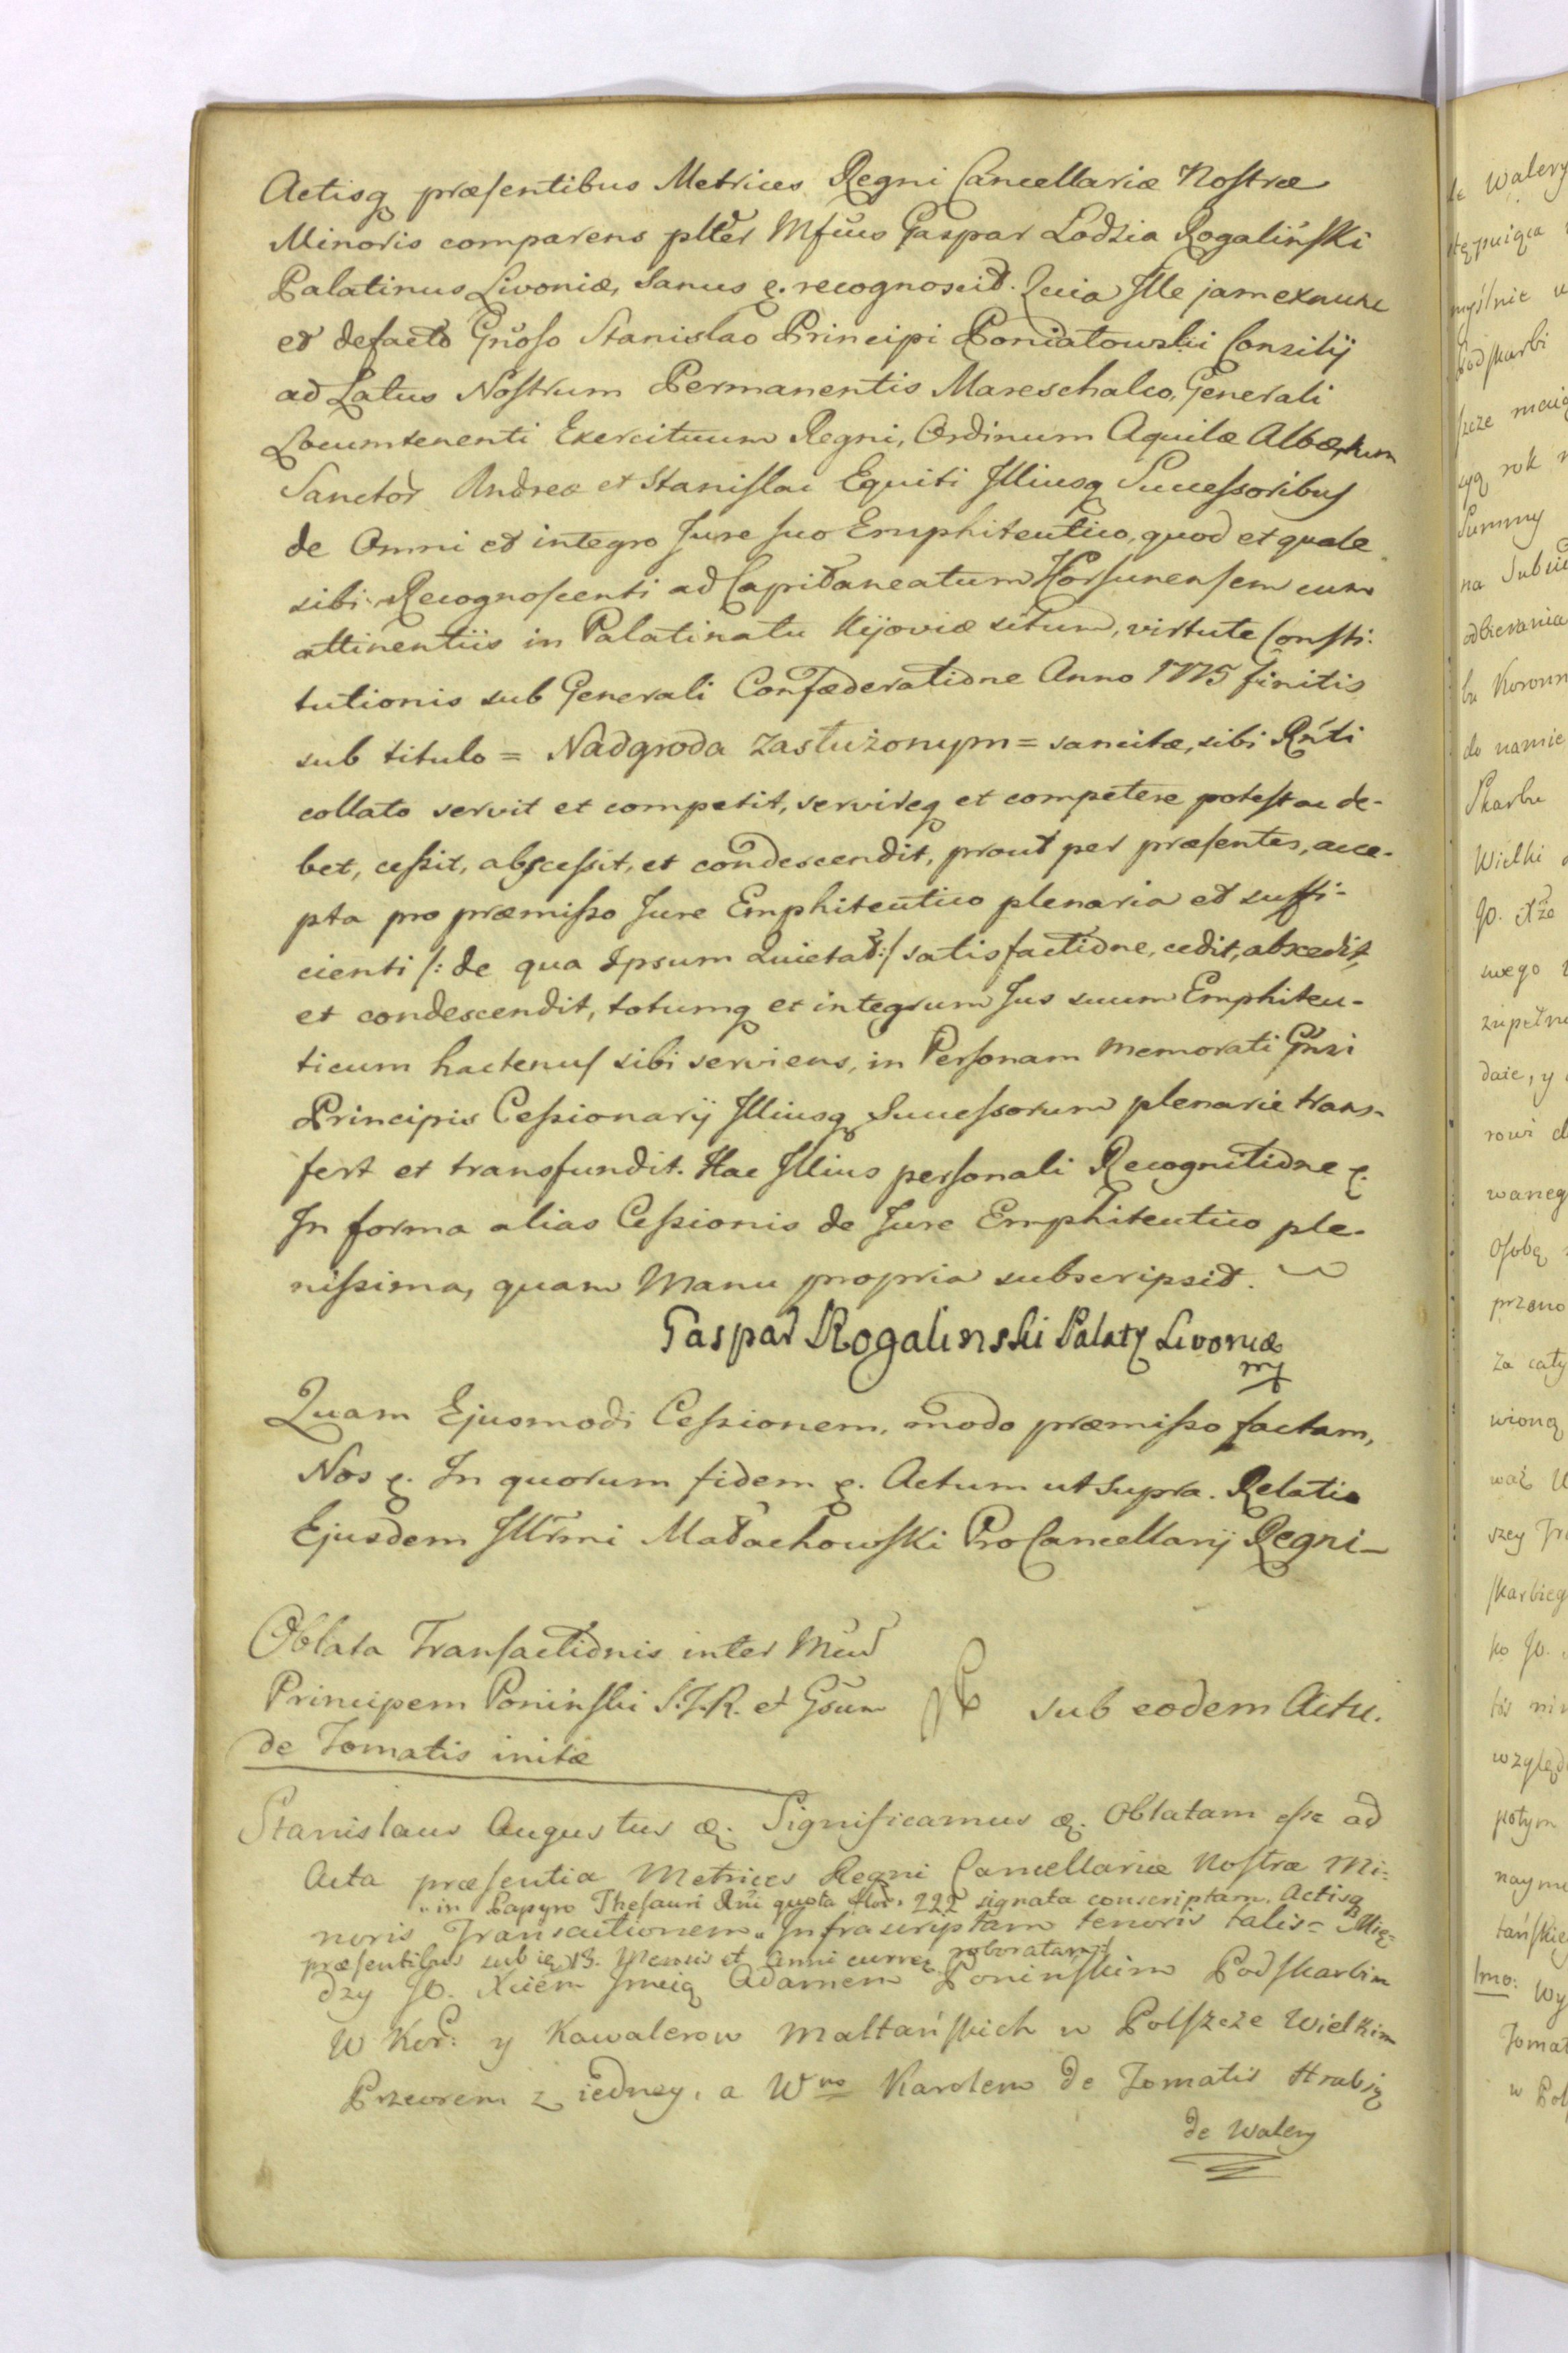 Actisq præsentibus Metrices Regni Cancellariæ Nostræ
Minoris comparens plter Mfcus Gaspar Lodzia Rogaliński
Palatinus Livoniæ, sanus &. recognoscit. Quia Ille jam exnunc
et defacto Gnoso Stanislao Principi Poniatowski Consilij
ad Latus Nostrum Permanentis Mareschalco, Generali
Locumtenenti Exercituum Regni, Ordinum Aquilæ Albæ, tum
Sanctor Andreæ et Stanislai Equiti Illiusq Successoribus
de Omni et integro Jure suo Emphiteutico, quod et quale
sibi Recognoscenti ad Capitaneatum Korsunensem cum
attinentiis in Palatinatu Kijoviæ situm, virtute Consti:
tutionis sub Generali Confæderatione Anno 1775 finitis
sub titulo = Nadgroda zasłużonym = sancitæ, sibi Rnti
collato servit et competit, servireq et competere potest ac de-
bet, cessit, abscessit, et condescendit, prout per præsentes, acce-
pta pro præmisso Jure Emphiteutico plenaria et suffi-
cienti /: de qua Ipsum Quietat :/ satisfactione, cedit, abscedit,
et condescendit, totumq et integrum Jus suum Emphiteu-
ticum hactenus sibi serviens, in Personam memorati Gnsi
Principis Cessionarij Illiusq Successorum plenarie trans-
fert et transfundit. Hac Illius personali Recognitione &.
In forma alias Cessionis de Jure Emphiteutico ple-
nissima, quam Manu propria subscripsit.
Gaspar Rogalinski Palaty Livoniæ
mp
Quam Ejusmodi Cessionem, modo præmisso factam,
Nos &. In quorum fidem &. Actum ut supra. Relatio
Ejusdem Illrmi Małachowski ProCancellarij Regni -
Oblata Transactionis inter Mcum
Principem Poninski S.J.R. et Gsum
sub eodem Actu.
de Tomatis initæ
Stanislaus Augustus &. Significamus &. Oblatam esse ad
Acta præsentia Metrices Regni Cancellariæ Nostræ Mi-
" in Papyro Thesauri Rni quota flor. 222 signata conscriptam, Actisq
noris Transactionem " Infrascriptam tenoris talis = Mię-
præsentibus sub 13. Mensis et Anni curren roboratam
dzy JO. Xciem Jmcią Adamem Ponińskim Podskarbim
W Kor: y Kawalerow Maltańskich w Polszcze Wielkim
Przeorem z iedney, a Wno Karolem de Tomatis Hrabią
de Walery